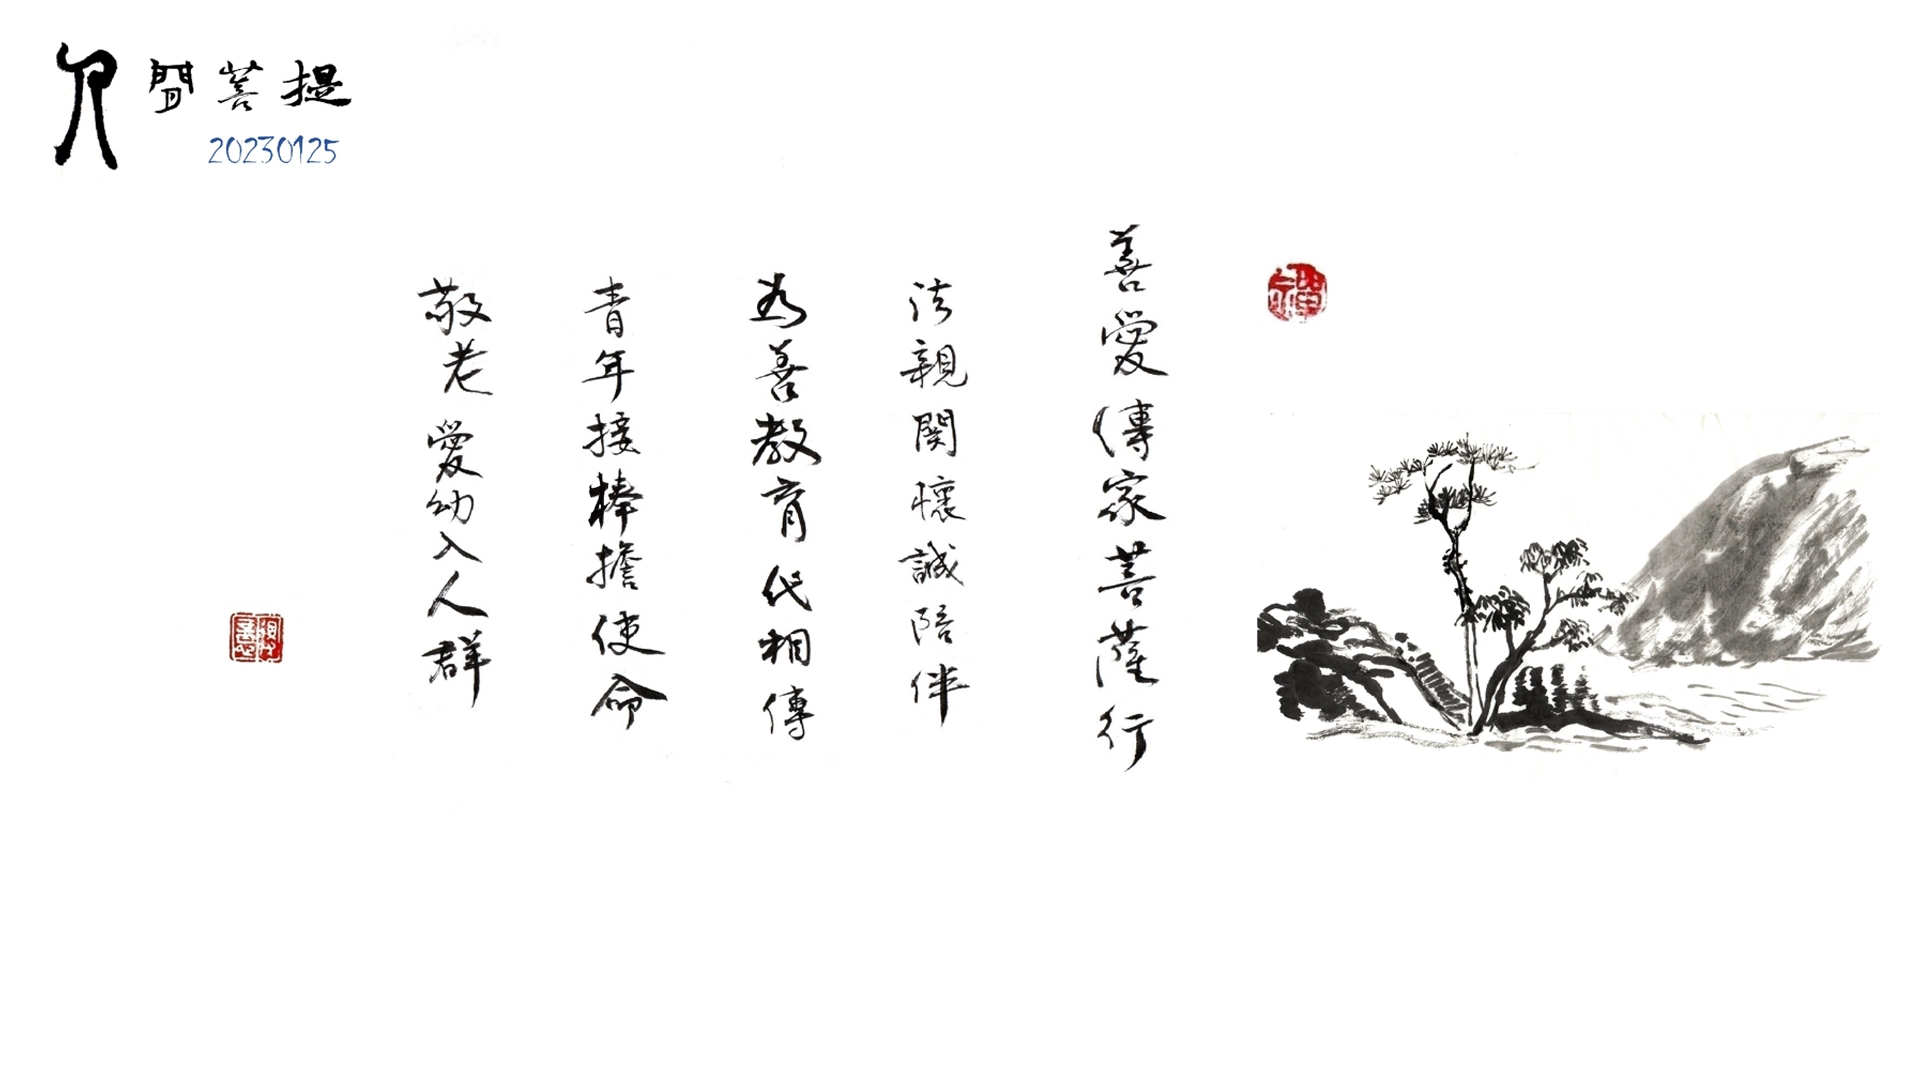 人間菩提
20230125
善愛傳家菩薩行
法親關懷誠陪伴
為善教育代相傳
青年接棒擔使命
敬老愛幼入人群
禪